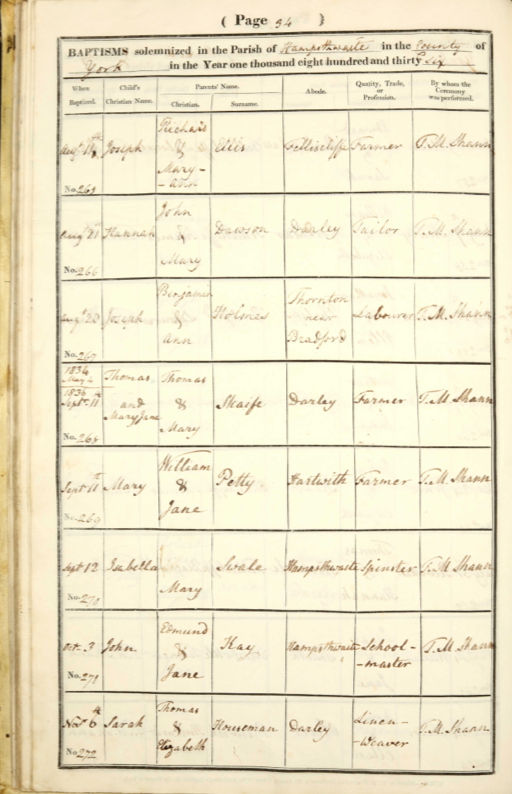 ( Page 34 )
BAPTISMS solemnized in the Parish of Hampsthwaite in the County of
York in the Year one thousand eight hundred and thirty Six
When Baptized. Child's Christian Name. Parents' Name. Christian. Surname. Abode. Quality, Trade, or Profession. By whom the Ceremony was performed.
Augt Joseph Richard & Mary- -ann Ellis Felliscliffe Farmer T. M. Shann
No.
Augt 21 Hannah John & Mary Dawson Darley Tailor T. M. Shann
No. 266
Joseph Benjamin & Ann Holmes Thornton near Bradford Labourer T. M. Shann
No. 267
1834 May 4 Thomas
1836 Septr. 11 and Mary Jane Thomas & Mary Skaife Darley Farmer T. M. Shann
No. 268
Sept 11th Mary William & Jane Petty Hartwith Farmer T. M. Shann
No. 269
Sept 12 Isabella Mary Swale Hampsthwaite Spinster T. M. Shann
No. 270
Oct. 3 John Edmund & Jane Kay Hampsthwaite School- -master T. M. Shann
No. 271
Novr 6th Sarah Thomas & Elizabeth Houseman Darley Linen- -weaver T. M. Shann
No. 272